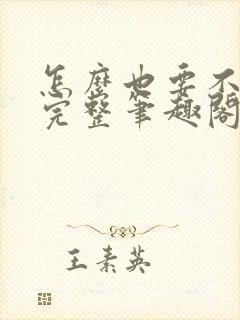 怎麼也要不
完整筆趣閣
王素英